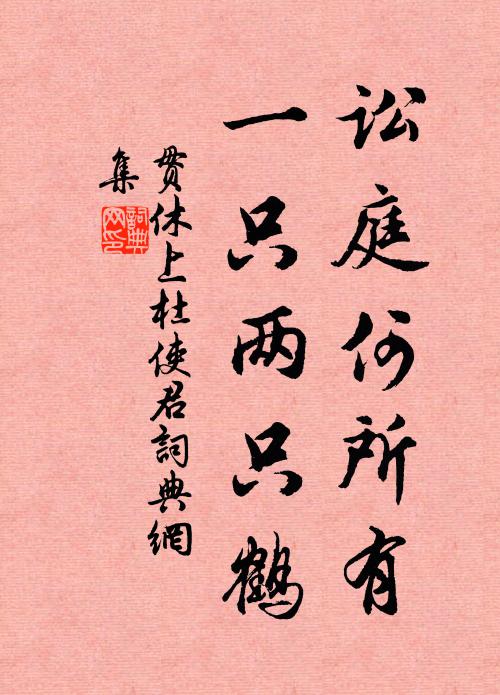 讼庭何所有
一只两只鹤
贯休上杜使君詞典網
集
詞典
网印